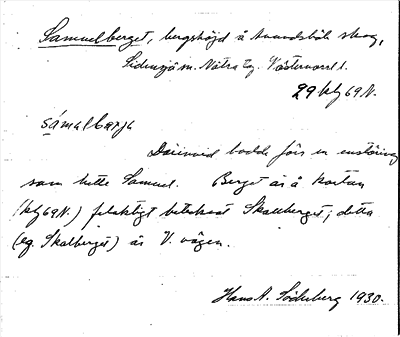 Samuelberget, bergshöjd å Anundsböle skog,
Sidensjö sn. Nätra tg. Västernorrl. l.
29 klg 69 N.
sámalbærjə
Därinvid bodde förr en enstöring
som hette Samuel. Berget är å kartan
(klg 69 N.) felaktigt betecknat Skallberget; detta
(eg. Skalberget) är V. vägen.
Hans A. Söderberg 1930.